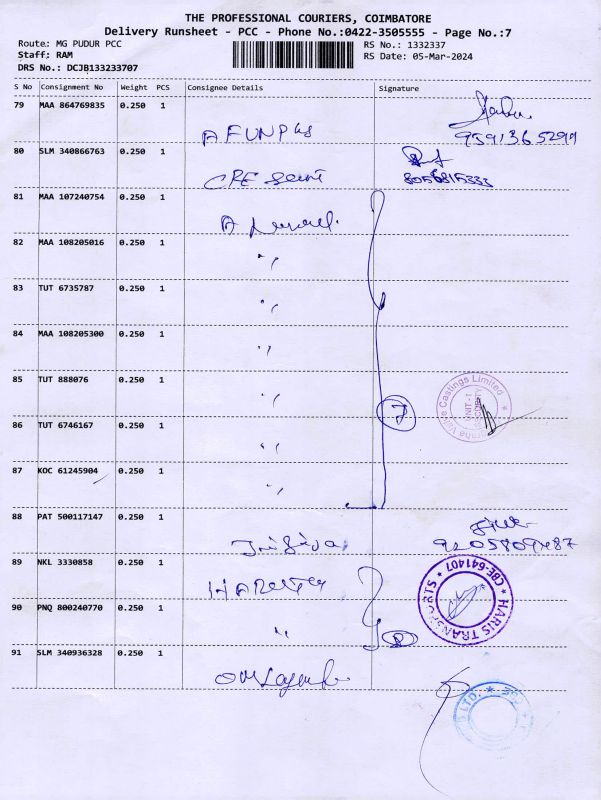 THE PROFESSIONAL COURIERS, COIMBATORE
Delivery Runsheet - PCC - Phone No.:0422-3505555 - Page No.:7
Route: MG PUDUR PCC
RS No.: 1332337
Staff: RAM
RS Date: 05-Mar-2024
DRS No.: DCJB133233707
S No Consignment No Weight PCS Consignee Details Signature
79 MAA 864769835 0.250 1
A FUNPls
9591365299
80 SLM 340866763 0.250 1
8056815333
81 MAA 107240754 0.250 1
A
82 MAA 108205016 0.250 1
"
83 TUT 6735787 0.250 1
"
84 MAA 108205300 0.250 1
"
85 TUT 888076 0.250 1
"
Castings Limited
UNIT-I
7
86 TUT 6746167 0.250 1
"
87 KOC 61245904 0.250 1
"
88 PAT 500117147 0.250 1
89 NKL 3330858 0.250 1
HARIS TRANSPORTS * CBE-641407 *
90 PNQ 800240770 0.250 1
"
2
91 SLM 340936328 0.250 1
LTD.